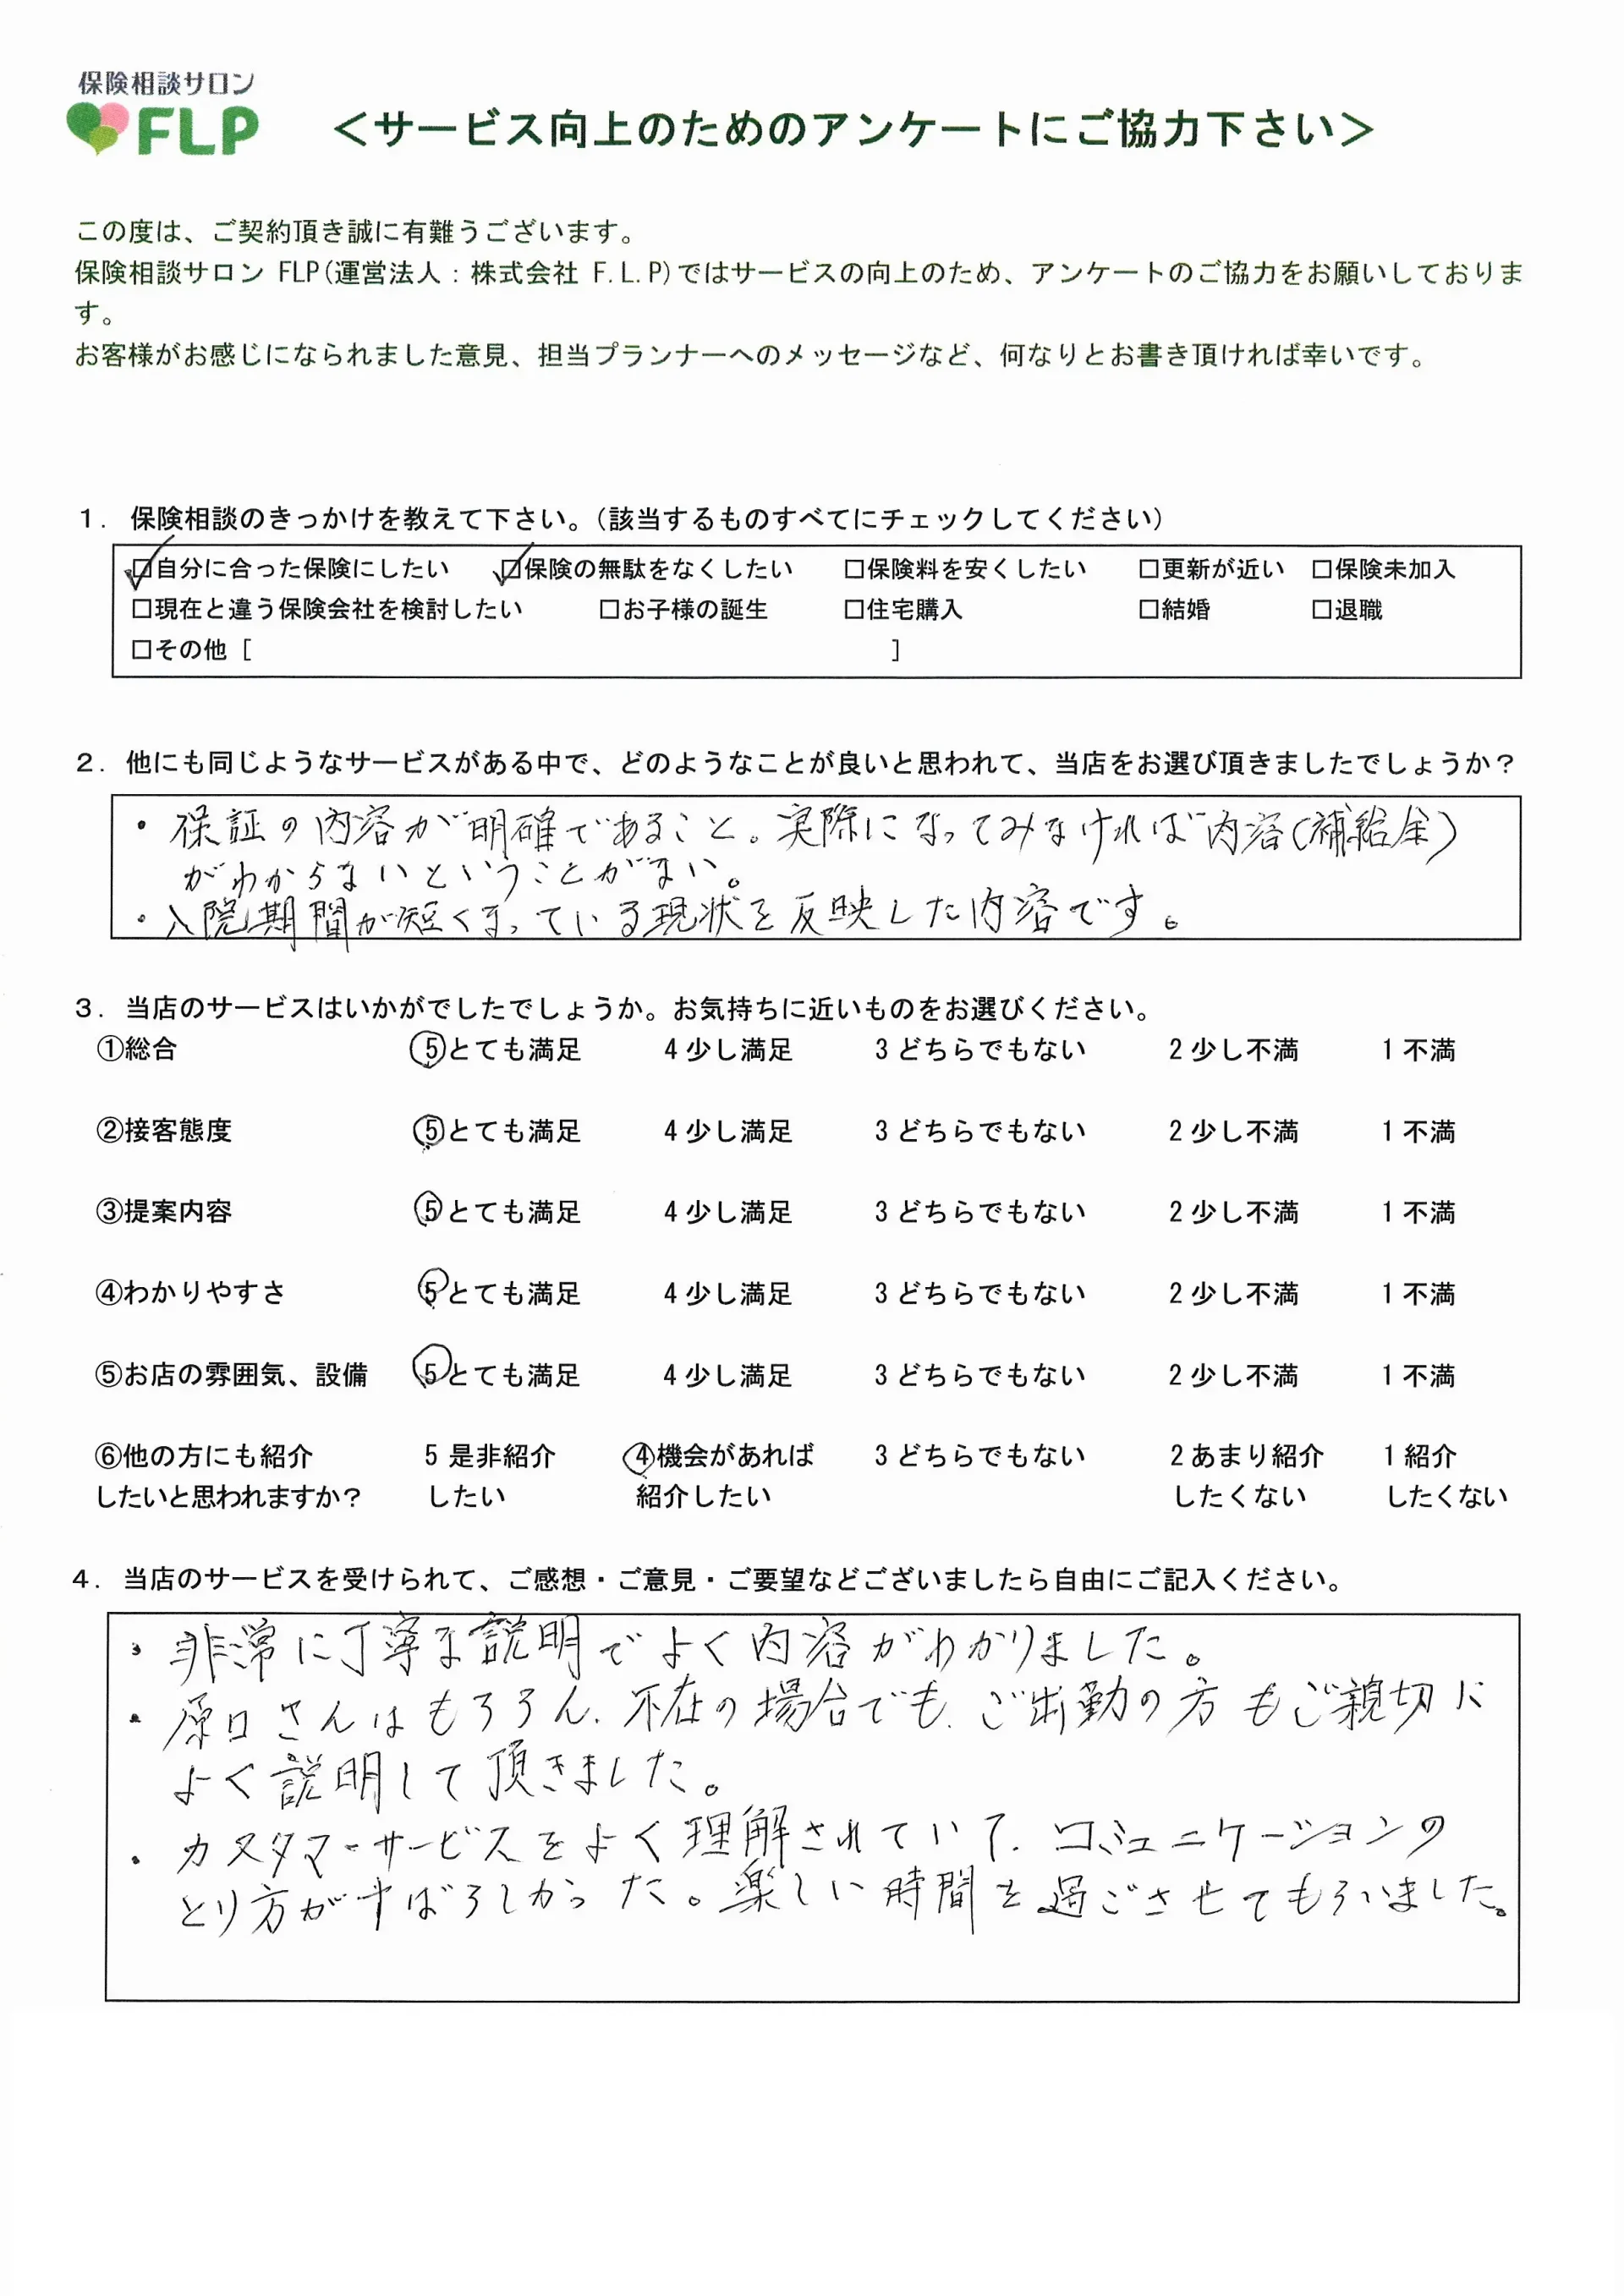 保険相談サロン
FLP
＜サービス向上のためのアンケートにご協力下さい＞
この度は、ご契約頂き誠に有難うございます。
保険相談サロン FLP(運営法人：株式会社 F.L.P)ではサービスの向上のため、アンケートのご協力をお願いしておりま
す。
お客様がお感じになられました意見、担当プランナーへのメッセージなど、何なりとお書き頂ければ幸いです。
１．保険相談のきっかけを教えて下さい。（該当するものすべてにチェックしてください）
☑自分に合った保険にしたい ☑保険の無駄をなくしたい □保険料を安くしたい □更新が近い □保険未加入
□現在と違う保険会社を検討したい □お子様の誕生 □住宅購入 □結婚 □退職
□その他［ ］
２．他にも同じようなサービスがある中で、どのようなことが良いと思われて、当店をお選び頂きましたでしょうか？
・保証の内容が明確であること。実際になってみなければ内容(補給金)
がわからないということがない。
・入院期間が短くなっている現状を反映した内容です。
３．当店のサービスはいかがでしたでしょうか。お気持ちに近いものをお選びください。
①総合 5とても満足 4 少し満足 3 どちらでもない 2 少し不満 1 不満
②接客態度 5とても満足 4 少し満足 3 どちらでもない 2 少し不満 1 不満
③提案内容 5とても満足 4 少し満足 3 どちらでもない 2 少し不満 1 不満
④わかりやすさ 5とても満足 4 少し満足 3 どちらでもない 2 少し不満 1 不満
⑤お店の雰囲気、設備 5とても満足 4 少し満足 3 どちらでもない 2 少し不満 1 不満
⑥他の方にも紹介 5 是非紹介 4機会があれば 3 どちらでもない 2 あまり紹介 1 紹介
したいと思われますか？ したい 紹介したい したくない したくない
４．当店のサービスを受けられて、ご感想・ご意見・ご要望などございましたら自由にご記入ください。
・非常に丁寧な説明でよく内容がわかりました。
・原口さんはもちろん、不在の場合でも、ご出勤の方もご親切に
よく説明して頂きました。
・カスタマーサービスをよく理解されていて、コミュニケーションの
とり方がすばらしかった。楽しい時間を過ごさせてもらいました。